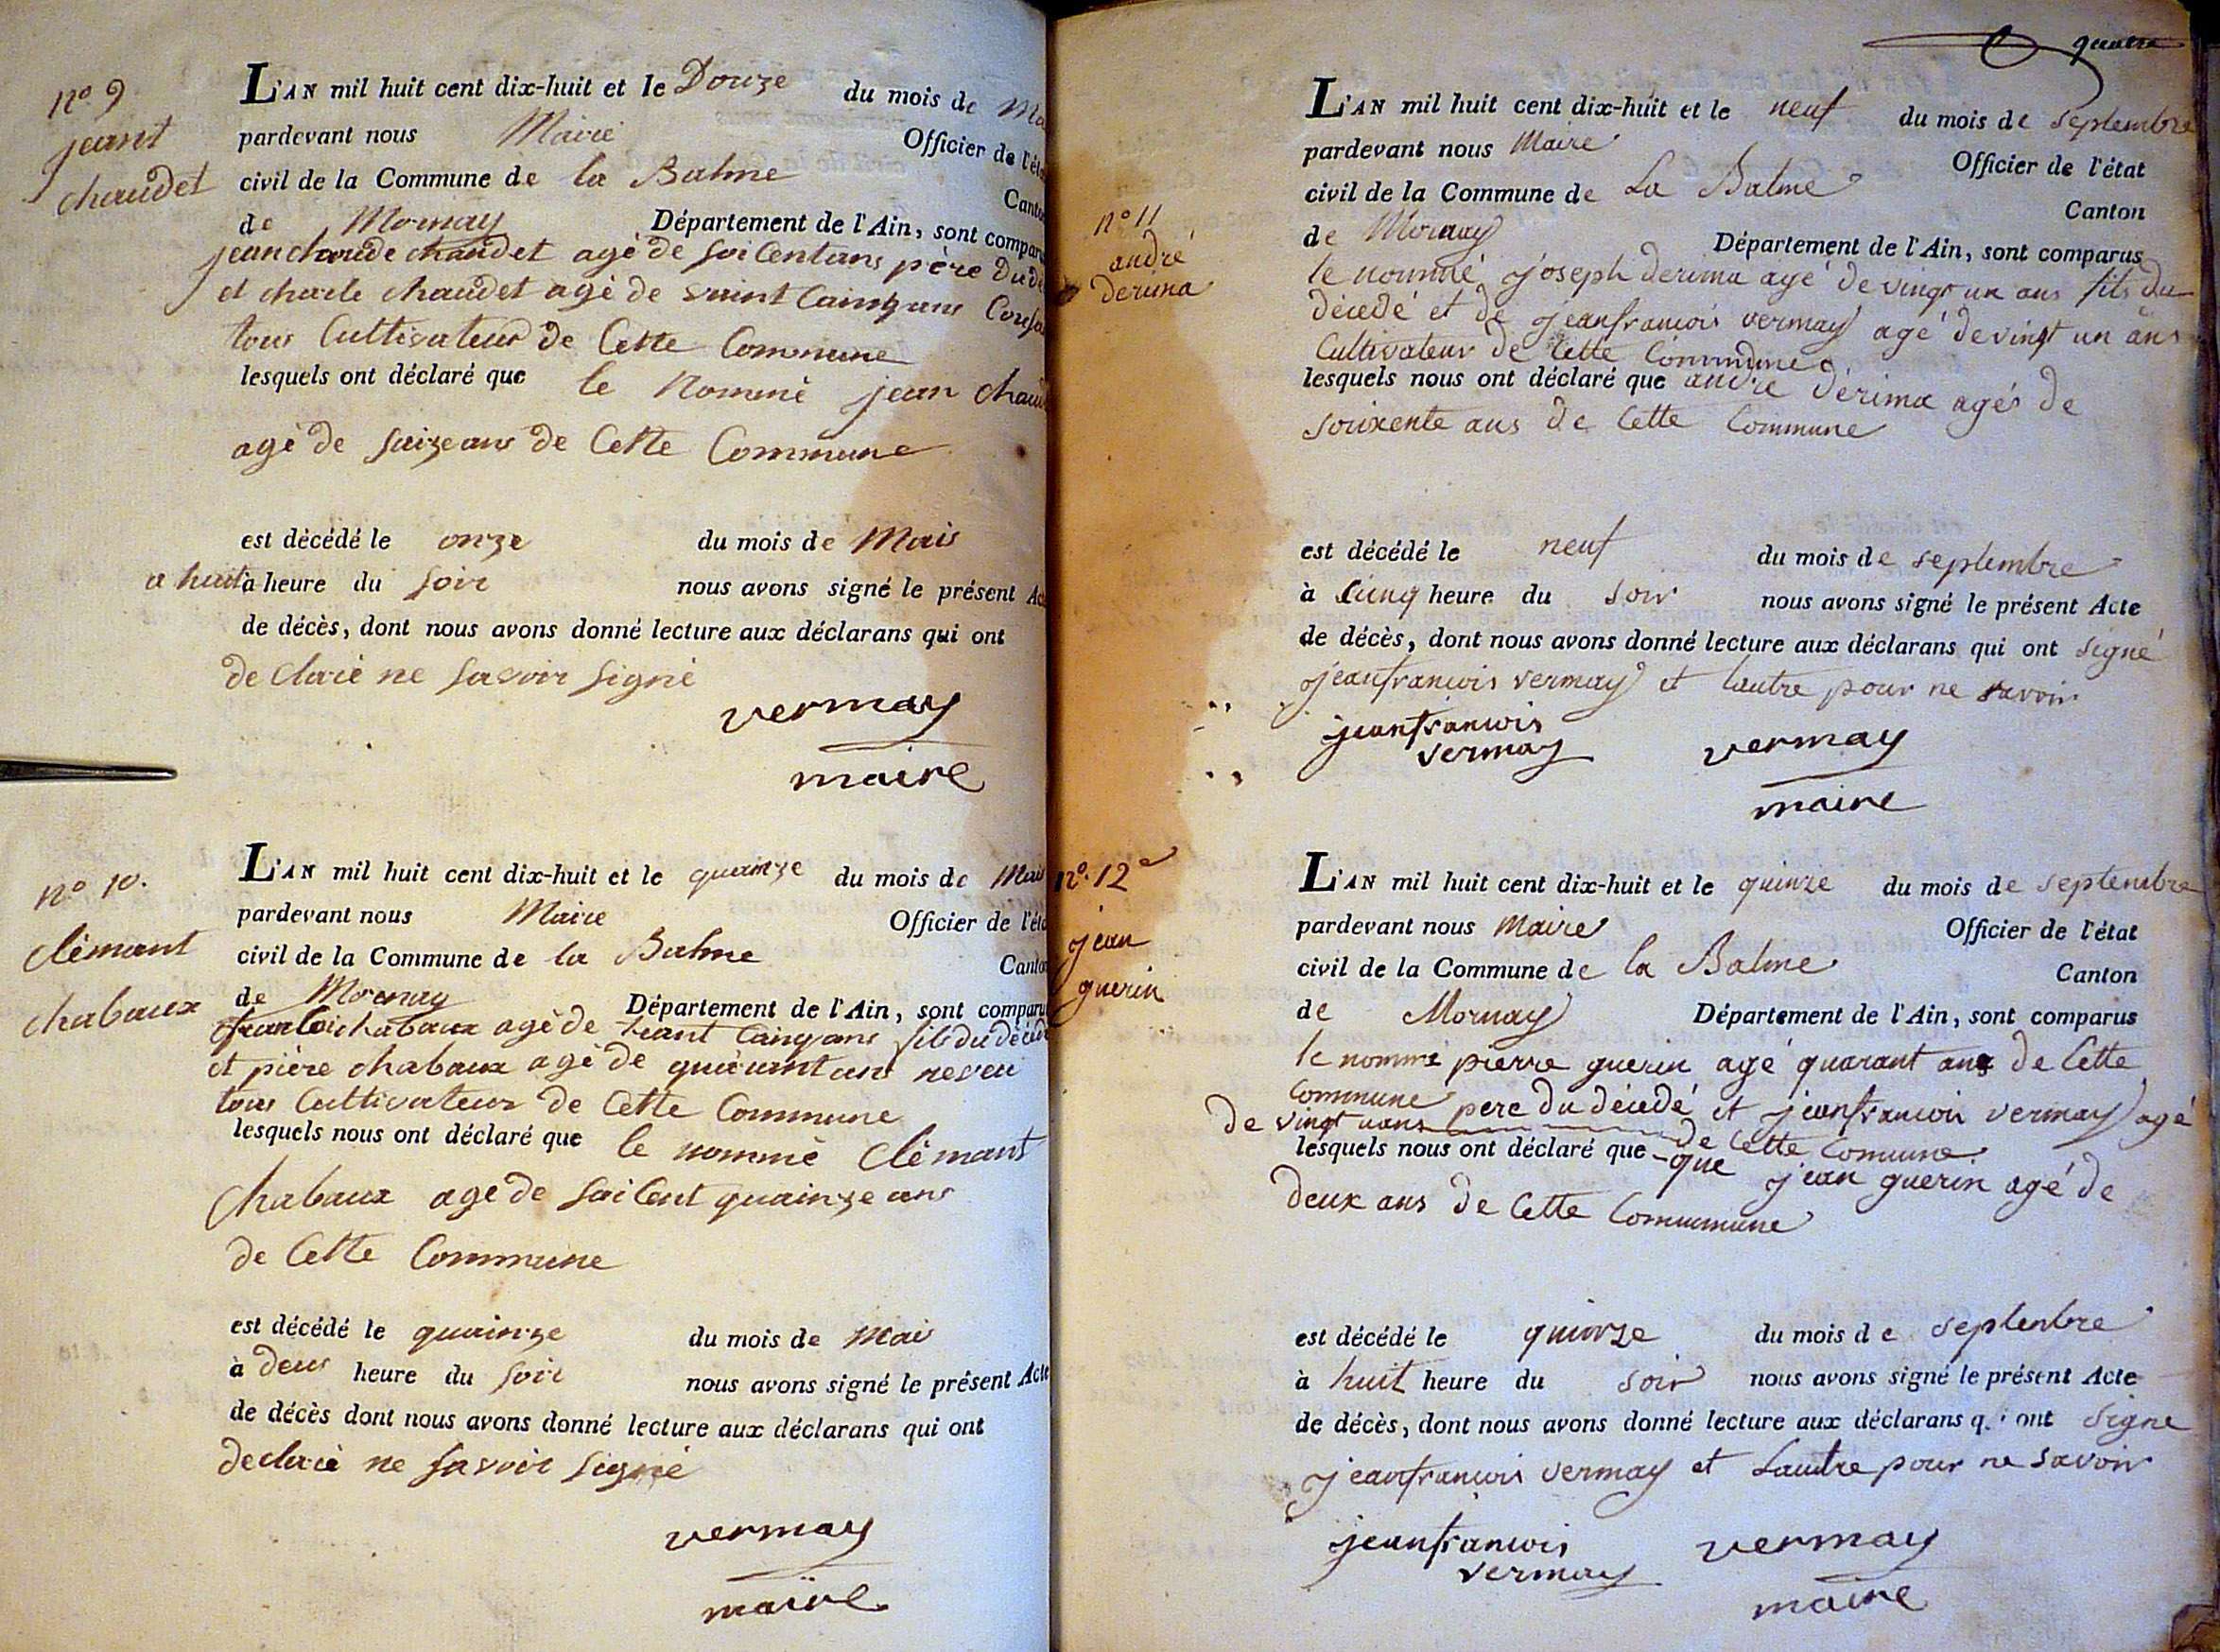 nº 9
jeant
chaudet
L'AN mil huit cent dix-huit et le Douze du mois de Ma
pardevant nous Maire Officier de l'éta
civil de la Commune de la Balme
Canton
de Mornay Département de l'Ain, sont comparu
jeanclaude chaudet agè de soiCentans père du dé
et charle chaudet agè de vaint Cainqans Cousa
tous Cultivateur de Cette Commune
lesquels ont déclaré que le Nommè jean Chaud
agè de saizeans de Cette Commune
est décédé le onze du mois de Mais
a huit à heure du soir nous avons signé le présent Ac
de décès, dont nous avons donné lecture aux déclarans qui ont
declarè ne savoir signè
vermay
maire
nº 10.
clèmant
chabaux
L'AN mil huit cent dix-huit et le quainze du mois de Mai
pardevant nous Maire Officier de l'éta
civil de la Commune de la Balme Canton
de Mornay Département de l'Ain, sont comparu
francoi chabaux agè de trant Cainqans fils du décédé
et pière chabaux agè de quarantans neveu
tous Cultivateur de Cette Commune
lesquels nous ont déclaré que le nommè Clèmant
Chabaux age de soiCent quainze ans
de Cette Commune
est décédé le quainze du mois de Mai
à deus heure du soir nous avons signé le présent Acte
de décès dont nous avons donné lecture aux déclarans qui ont
declarè ne savoir signè
vermay
maire
quatre
nº 11
andré
derima
L'AN mil huit cent dix-huit et le neuf du mois de septembre
pardevant nous Maire Officier de l'état
civil de la Commune de La Balme
Canton
de Mornay Département de l'Ain, sont comparus
le nommé joseph derima agé de vingt un ans fils du
décedé et de jeanfrancois vermay agé de vingt un ans
Cultivateur de Cette Commune
lesquels nous ont déclaré que andre dérima agés de
soixente ans de Cette Commune
est décédé le neuf du mois de septembre
à Cinq heure du soir nous avons signé le présent Acte
de décès, dont nous avons donné lecture aux déclarans qui ont signé
jeanfrancois vermay et lautre pour ne savoir
jeanfrancois
vermay
vermay
maire
nº 12e
jean
guerin
L'AN mil huit cent dix-huit et le quinze du mois de septembre
pardevant nous Maire Officier de l'état
civil de la Commune de la Balme
Canton
de Mornay Département de l'Ain, sont comparus
le nommé pierre guerin agé quarant ans de Cette
Commune pere du décedé et jeanfrancois vermay agé
de vingt uans de Cette Comune
lesquels nous ont déclaré que que jean guerin agé de
deux ans de Cette Commumune
est décédé le quinze du mois de septenbre
à huit heure du soir nous avons signé le présent Acte
de décès, dont nous avons donné lecture aux déclarans q. i ont signe
jeanfrancois vermay et Lautre pour ne savoir
jeanfrancois
vermay
vermay
maire